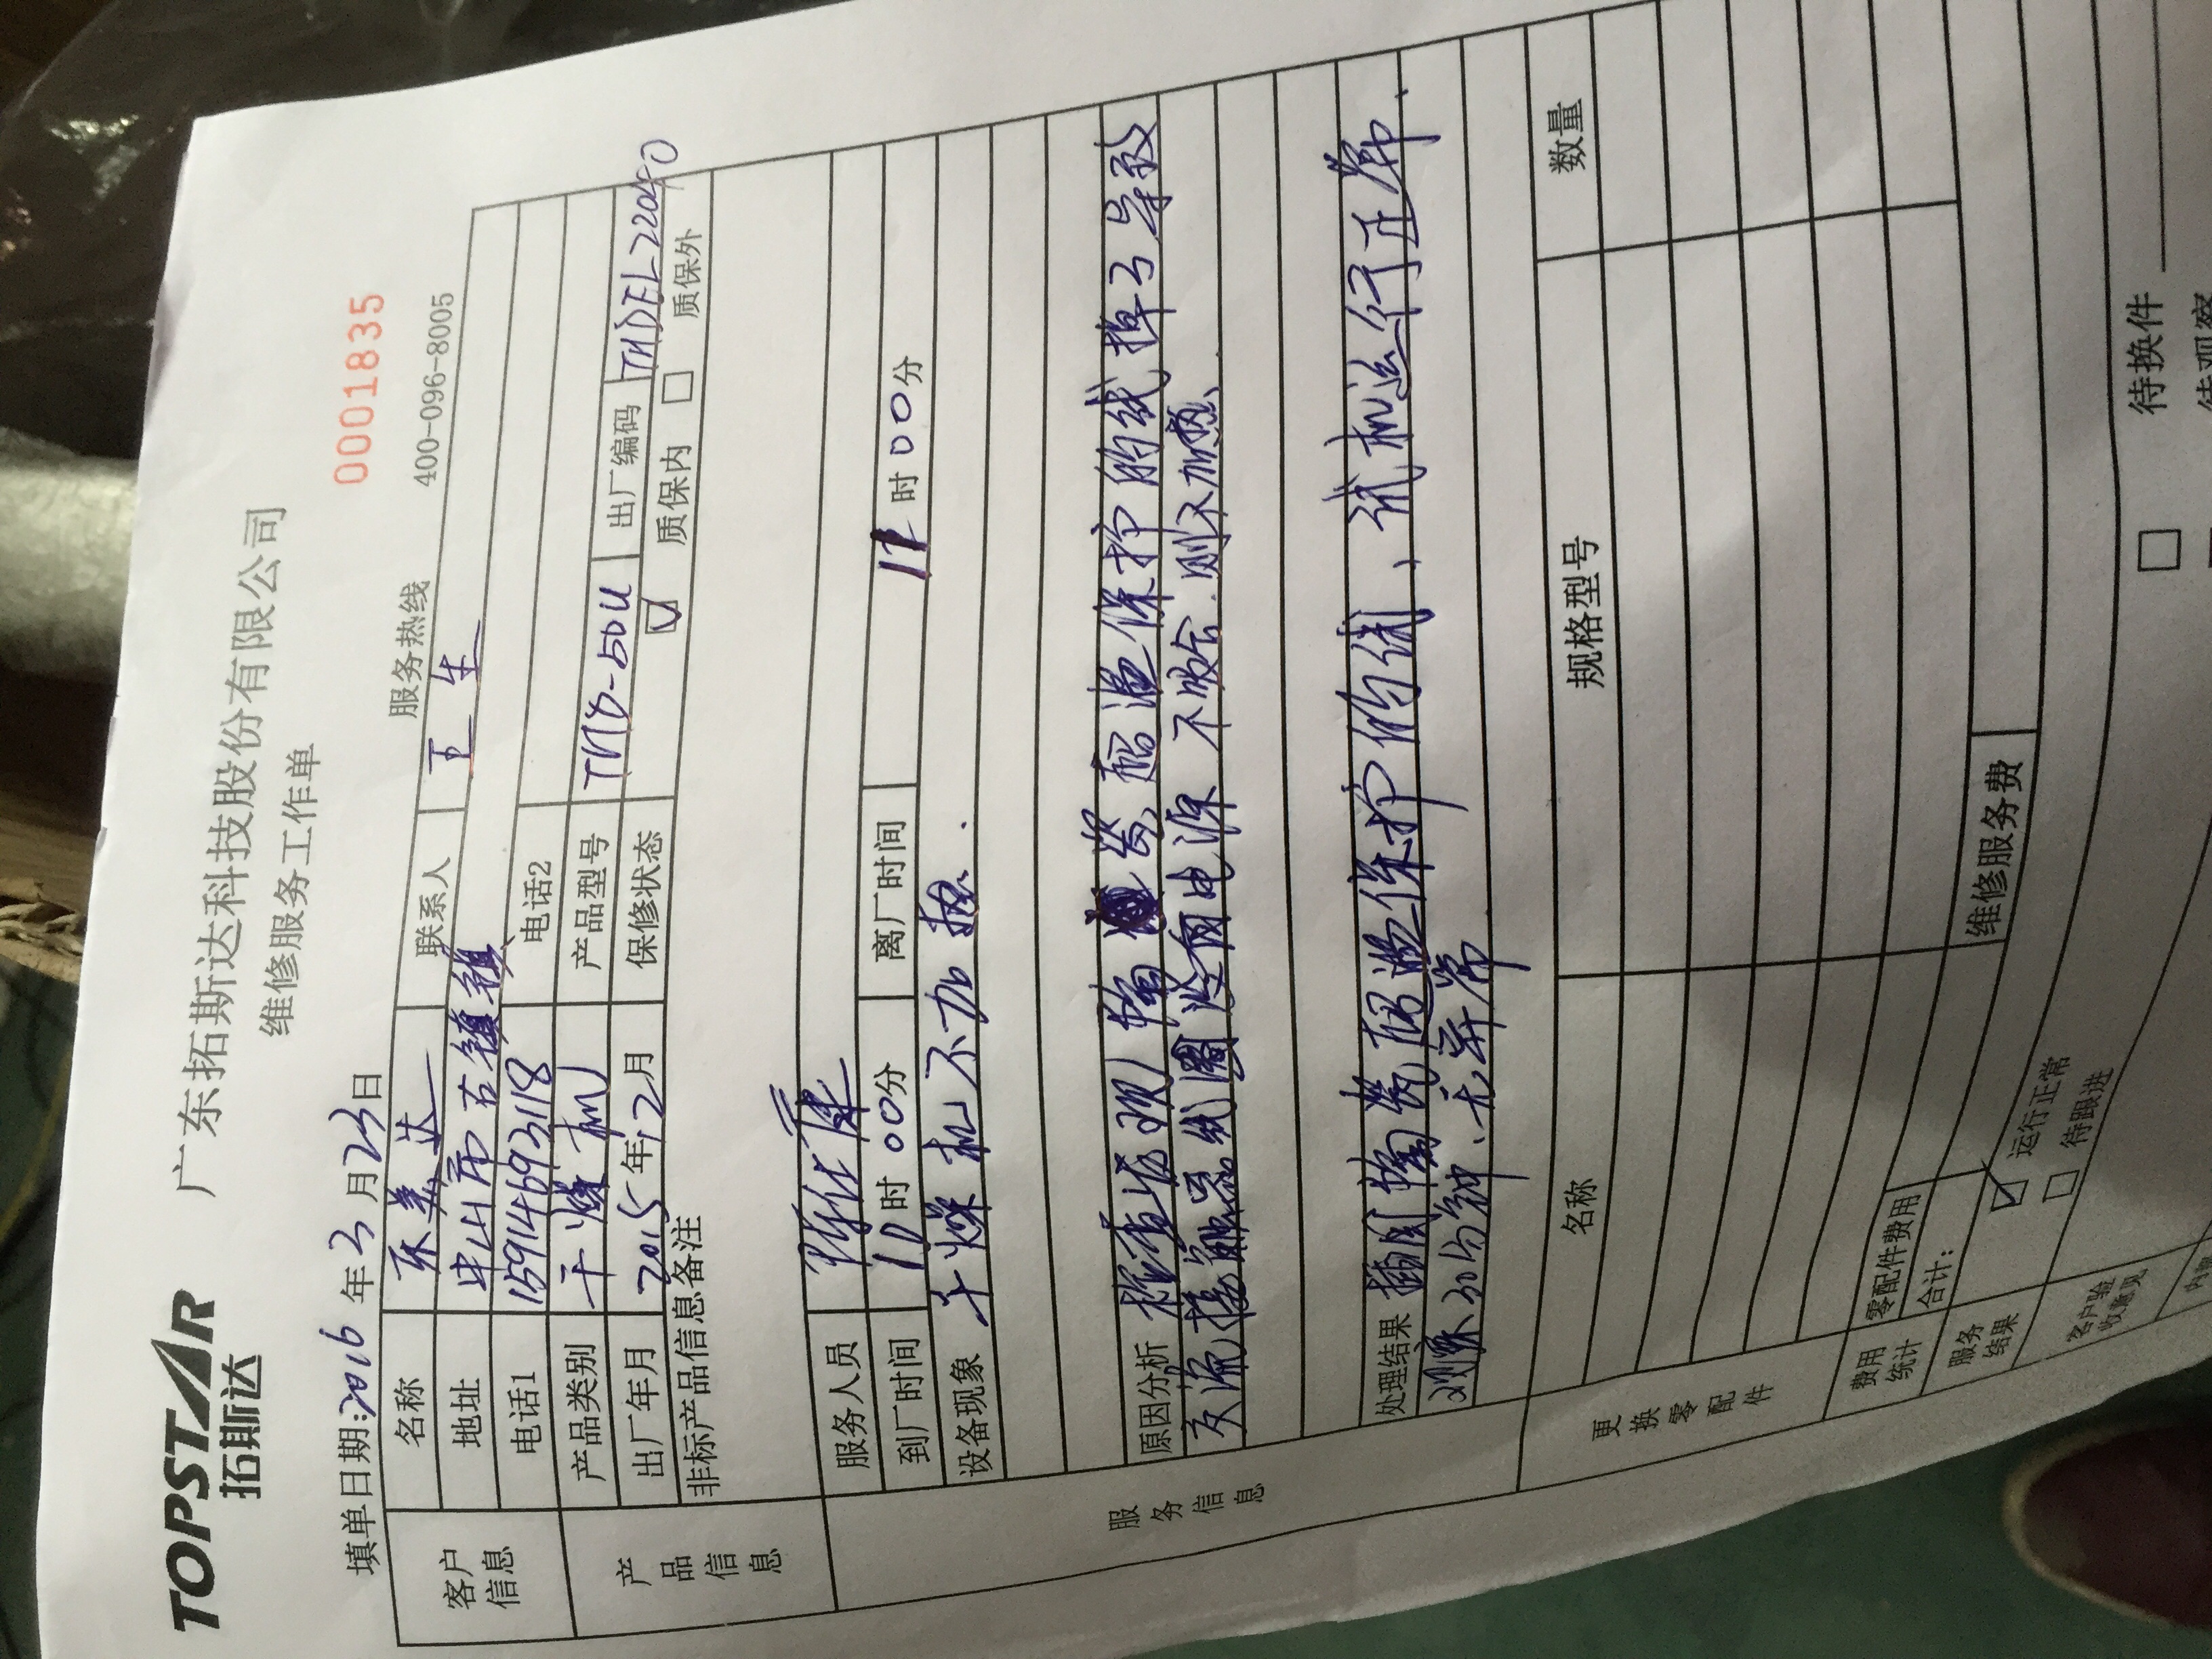 TOPSTAR
拓斯达
广东拓斯达科技股份有限公司
维修服务工作单
0001835
填单日期:2016年3月23日
服务热线 400-096-8005
客户信息
名称 东美达 联系人 王生
地址 中山市古镇镇
电话1 15914693118 电话2
产品信息
产品类别 干燥机 产品型号 THD-50U 出厂编码 THDEL22040
出厂年月 2015年12月 保修状态 质保内 质保外
非标产品信息备注
服务信息
服务人员
到厂时间 10时00分 离厂时间 时00分
设备现象 干燥机不加热.
原因分析 检查发现 超温保护的线掉了导致
交流接触器线圈没有电源 不吸合 则不加热、
处理结果 超温保护的线、试机运行正常、
观察30分钟、无异常
更换零配件
名称 规格型号 数量
费用统计
零配件费用 维修服务费
合计:
服务结果
运行正常 待换件
待跟进 待观察
客户验收意见